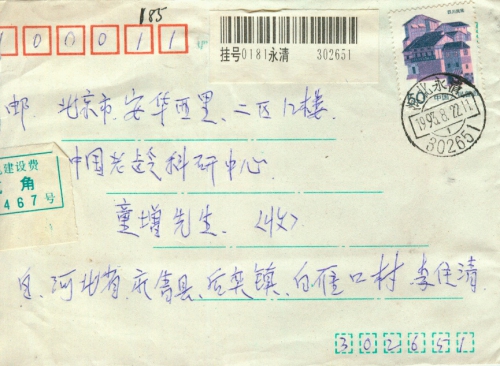 185
100011
挂号0181永清 302651
邮 北京市安华西里、二区12楼
中国老龄科研中心
童增先生、(收)
自、河北省、永清县、后奕镇、白雁口村 李佳清
302651
建设费
角
467号
河北永清
1995.8.22.11
302651
中国